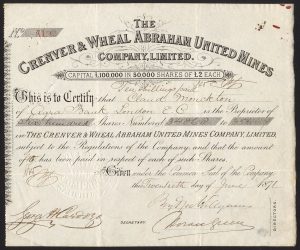 THE
CRENVER & WHEAL ABRAHAM UNITED MINES
COMPANY, LIMITED.
CAPITAL £100,000 IN 50,000 SHARES OF £2 EACH
Ten Shillings paid
This is to Certify that Claud Monckton
of Agra Bank London E C is the Proprietor
of Shares
in THE CRENVER & WHEAL ABRAHAM UNITED MINES COMPANY, LIMITED,
subject to the Regulations of the Company, and that the amount
of has been paid in respect of each of such Shares.
Given under the Common Seal of the Company
the Twentieth day of June 1871
SECRETARY.
DIRECTORS.